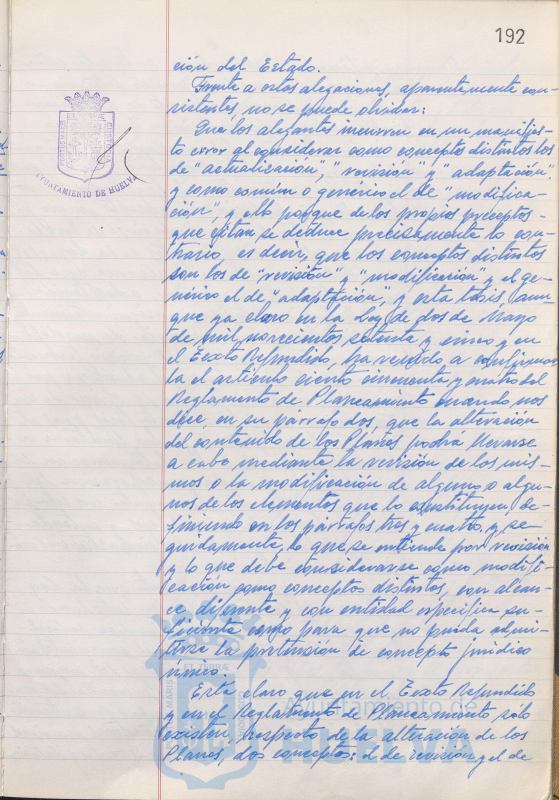 192
ción del Estado.
Frente a estas alegaciones, aparentemente con-
sistentes, no se puede olvidar:
Que los alegantes incurren en un manifies-
to error al considerar como conceptos distintos los
de "actualización", "revisión" y "adaptación",
y como común o genérico el de "modifica-
ción", y ello porque de los propios preceptos
que citan se deduce precisamente lo con-
trario, es decir, que los conceptos distintos
son los de "revisión" y "modificación" y el ge-
nérico el de "adaptación", y esta tesis, aun-
que ya claro en la Ley de dos de Mayo
de mil novecientos setenta y cinco y en
el Texto Refundido, ha venido a confirmar
la el artículo ciento cincuenta y cuatro del
Reglamento de Planeamiento cuando nos
dice, en su párrafo dos, que la alteración
del contenido de los Planes podrá llevarse
a cabo mediante la revisión de los mis-
mos o la modificación de alguno o algu-
nos de los elementos que lo constituyen, de-
finiendo en los párrafos tres y cuatro, y se-
guidamente, lo que se entiende por revisión
y lo que debe considerarse como modifi-
cación como conceptos distintos, con alcan-
ce diferente y con entidad específica su-
ficiente como para que no pueda admi-
tirse la pretensión de concepto jurídico
único.
Está claro que en el Texto Refundido
y en el Reglamento de Planeamiento sólo
existen respecto de la alteración de los
Planes, dos conceptos: el de revisión y el de
AYUNTAMIENTO DE HUELVA
Ayuntamiento de
HUELVA